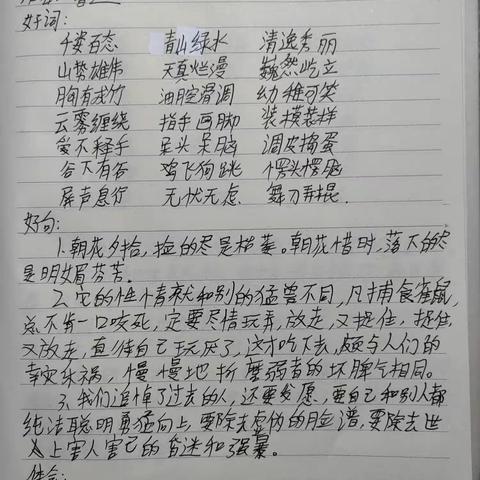 好词:
千姿百态 青山绿水 清逸秀丽
山势雄伟 天真烂漫 巍然屹立
胸有成竹 油腔滑调 幼稚可笑
云雾缠绕 指手画脚 装模装样
爱不释手 呆头呆脑 调皮捣蛋
谷下有谷 鸡飞狗跳 愣头愣脑
屏声息行 无忧无虑 舞刀弄棍.
好句:
1.朝花夕拾,捡的尽是枯萎。朝花惜时,落下的尽
是明媚芬芳。
2.它的性情就和别的猛兽不同,凡捕食雀鼠,
总不肯一口咬死,定要尽情玩弄,放走,又捉住,捉住
又放走,直待自己玩厌了,这才吃下去,颇与人们的
幸灾乐祸,慢慢地折磨弱者的坏脾气相同。
3、我们追悼了过去的人,还要发愿,要自己和别人都
纯洁聪明勇猛向上,要除去虚伪的脸谱,要除去世
上害人害己的昏迷和强暴。
体会: